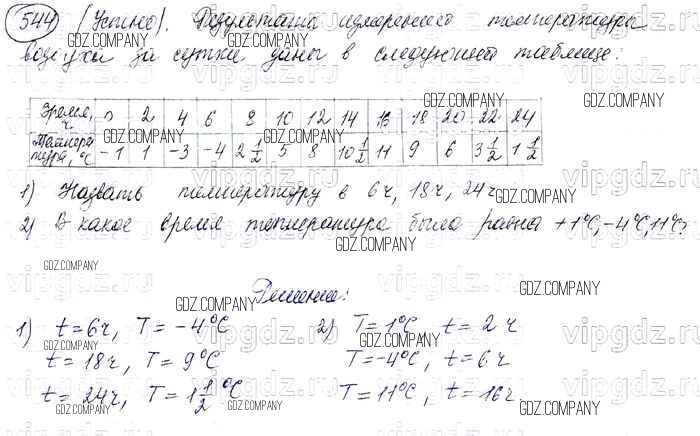 544 (Устно). Результаты измерения температуры
воздуха за сутки даны в следующей таблице:
Время, ч 0 2 4 6 8 10 12 14 16 18 20 22 24
Температура, °С -1 1 -3 -4 2 1/2 5 8 10 1/2 11 9 6 3 1/2 1 1/2
1) Назвать температуру в 6ч, 18ч, 24ч
2) В какое время температура была равна +1°С, -4°С, 11°С?
Решение:
1) t = 6ч, T = -4°С 2) T = 1°С, t = 2ч
t = 18ч, T = 9°С T = -4°С, t = 6ч
t = 24ч, T = 1 1/2 °С T = 11°С, t = 16ч.
GDZ.COMPANY
vipgdz.ru